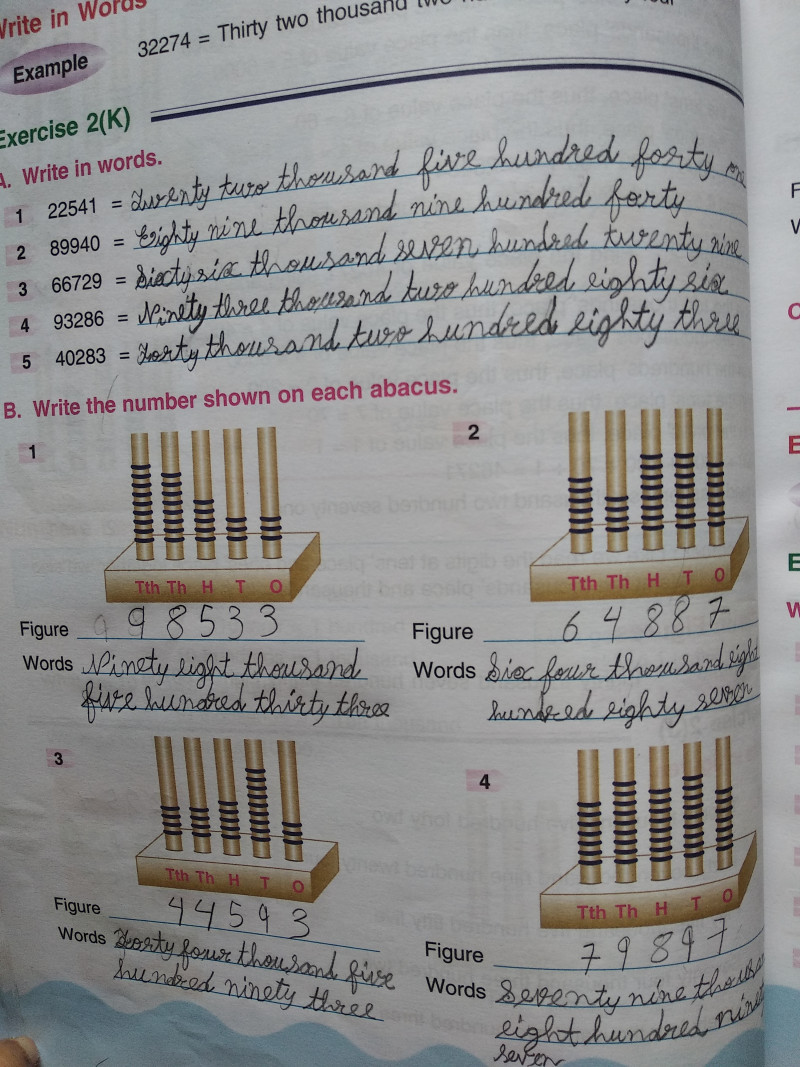 Write in Words
Example
32274 = Thirty two thousand two
Exercise 2(K)
A. Write in words.
1 22541 = Twenty two thousand five hundred forty one
2 89940 = Eighty nine thousand nine hundred forty
3 66729 = Sixty six thousand seven hundred twenty nine
4 93286 = Ninety three thousand two hundred eighty six
5 40283 = Forty thousand two hundred eighty three
B. Write the number shown on each abacus.
1 2
Tth Th H T O Tth Th H T O
Figure 98533 Figure 64887
Words Ninety eight thousand
five hundred thirty three
Words Six four thousand eight
hundred eighty seven
3 4
Tth Th H T O Tth Th H T O
Figure 44593
Words Forty four thousand five
hundred ninety three
Figure 79897
Words Seventy nine
eight hundred
seven